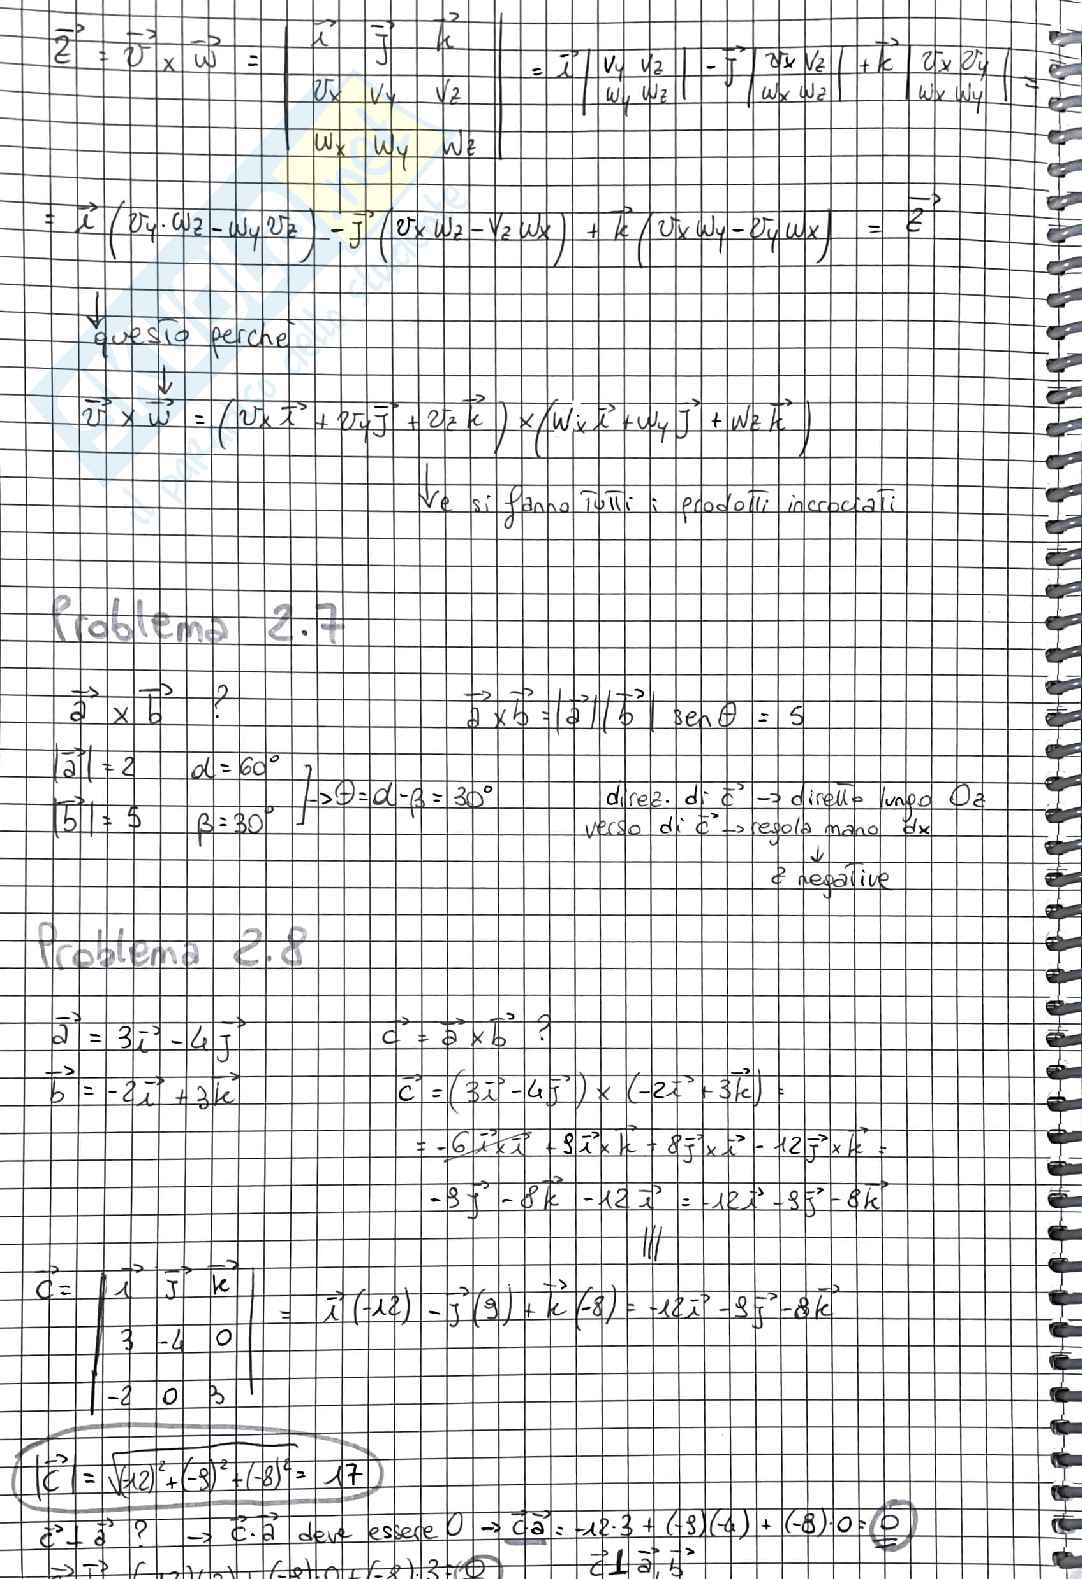 z⃗ = v⃗ × w⃗ = | i⃗ j⃗ k⃗ | = i⃗ | vy vz | - j⃗ | vx vz | + k⃗ | vx vy | =
| vx vy vz | | wy wz | | wx wz | | wx wy |
| wx wy wz |
= i⃗ (vy·wz - wy vz) - j⃗ (vx wz - vz wx) + k⃗ (vx wy - vy wx) = z⃗
↓
questo perché
↓
v⃗ × w⃗ = (vx i⃗ + vy j⃗ + vz k⃗) × (wx i⃗ + wy j⃗ + wz k⃗)
↓ e si fanno tutti i prodotti incrociati
Problema 2.7
a⃗ × b⃗ ? a⃗ × b⃗ = |a⃗| |b⃗| sen θ = 5
|a⃗| = 2 α = 60°
→ θ = α - β = 30°
|b⃗| = 5 β = 30°
direz. di c⃗ → diretto lungo Oz
verso di c⃗ → regola mano dx
↓
z negative
Problema 2.8
a⃗ = 3i⃗ - 4j⃗ c⃗ = a⃗ × b⃗ ?
b⃗ = -2i⃗ + 3k⃗ c⃗ = (3i⃗ - 4j⃗) × (-2i⃗ + 3k⃗) =
= -6 i⃗×i⃗ + 9 i⃗×k⃗ + 8j⃗×i⃗ - 12j⃗×k⃗ =
-9j⃗ - 8k⃗ - 12i⃗ = -12i⃗ - 9j⃗ - 8k⃗
|||
c⃗ = | i⃗ j⃗ k⃗ |
= i⃗(-12) - j⃗(9) + k⃗(-8) = -12i⃗ - 9j⃗ - 8k⃗
| 3 -4 0 |
| -2 0 3 |
|c⃗| = √(-12)² + (-9)² + (-8)² = 17
c⃗ ⊥ a⃗ ? → c⃗·a⃗ deve essere 0 → c⃗·a⃗ = -12·3 + (-9)(-4) + (-8)·0 = 0
c⃗ ⊥ a⃗, b⃗